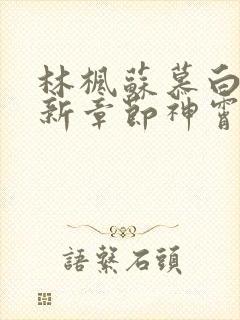 林楓蘇慕白
新章節神霄
語繫石頭